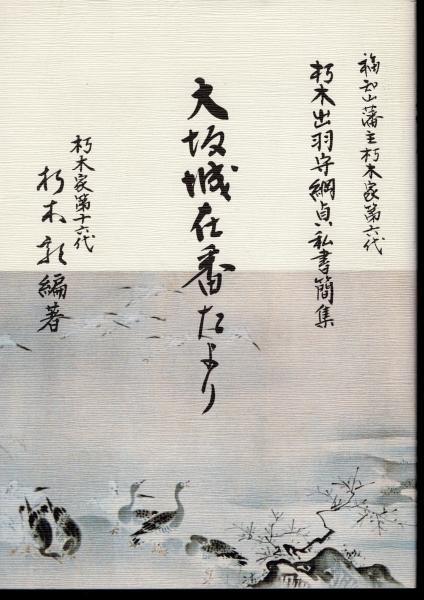 福知山藩主朽木家第六代
朽木出羽守綱貞公私書簡集
大坂城在番たより
朽木家第十六代
朽木 編著